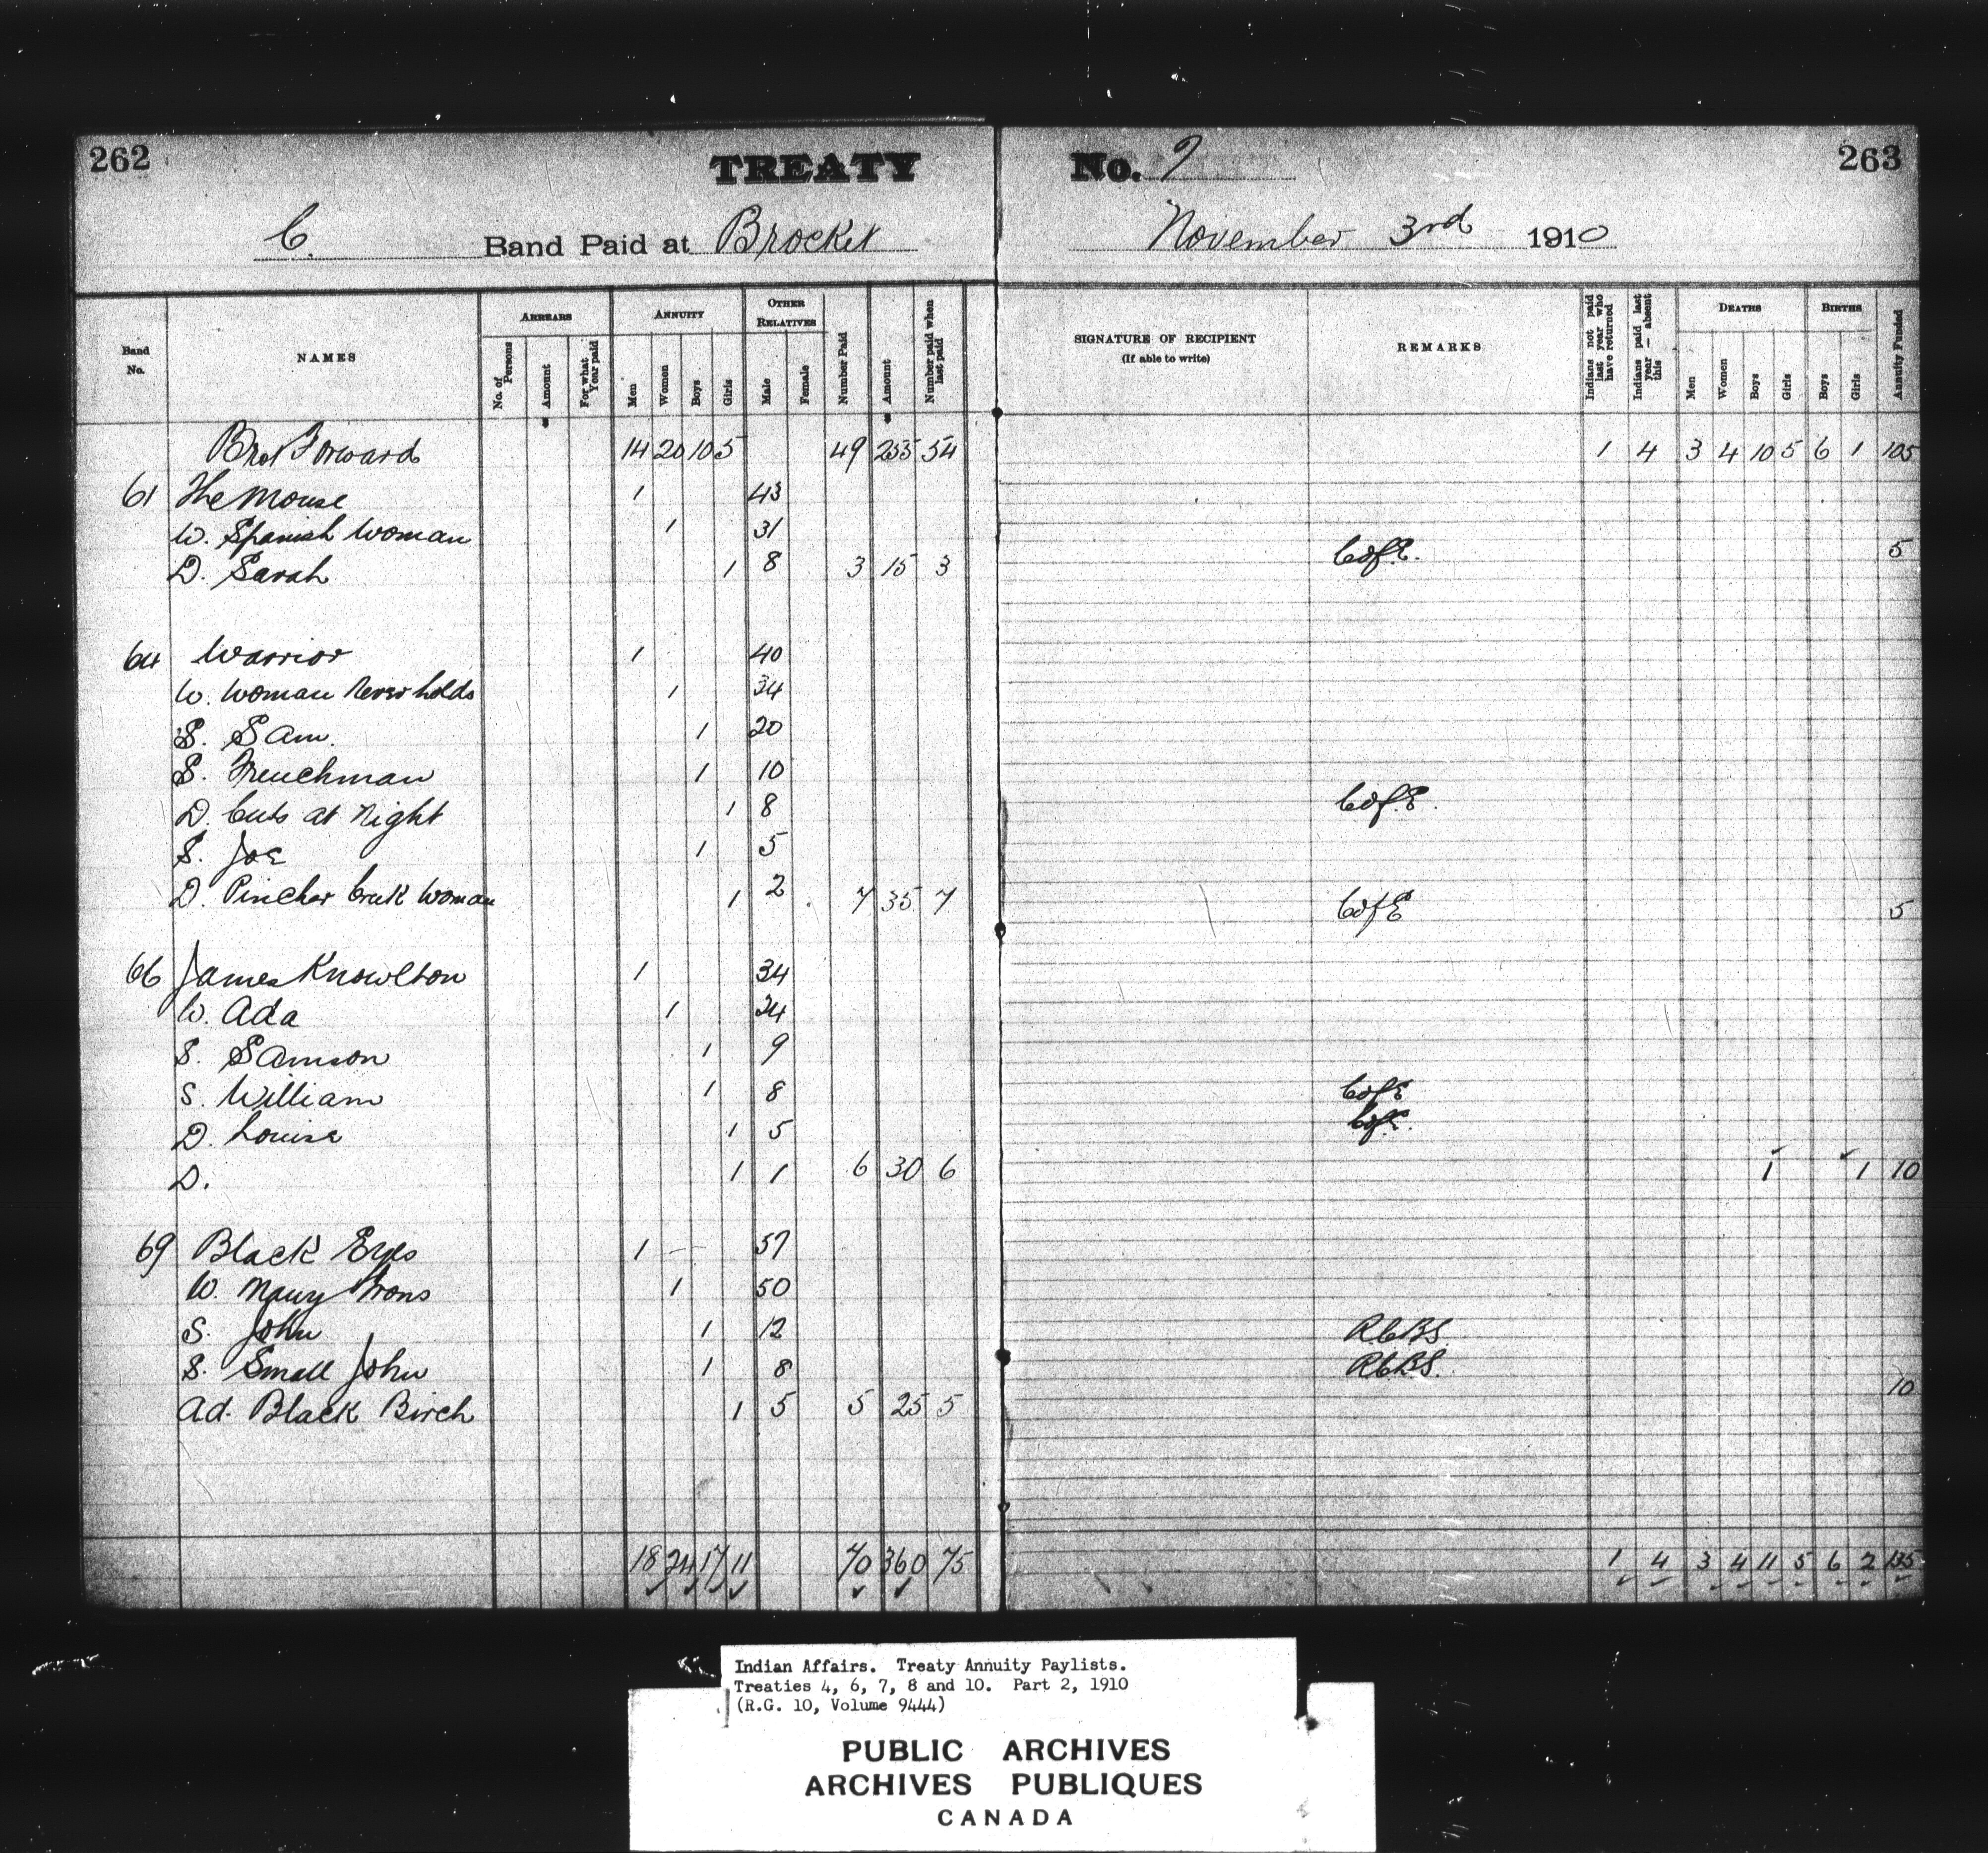 262
TREATY No. 7
263
C. Band Paid at Brocket
November 3rd 1910
Band No.
NAMES
ARREARS
No. of Persons
Amount
For what Year paid
ANNUITY
Men
Women
Boys
Girls
OTHER RELATIVES
Male
Female
Number Paid
Amount
Number paid when last paid
SIGNATURE OF RECIPIENT
(If able to write)
REMARKS
Indians not paid last year who have returned
Indians paid last year — absent this
DEATHS
Men
Women
Boys
Girls
BIRTHS
Boys
Girls
Annuity Funded
Brot Forward 14 20 10 5 49 255 54 1 4 3 4 10 5 6 1 105
61 The Mouse 1 43
W. Spanish Woman 1 31
D. Sarah 1 8 3 15 3 C of E. 5
64 Warrior 1 40
W. Woman Never holds 1 34
S. Sam. 1 20
S. Frenchman 1 10
D. Cuts at Night 1 8 C of E.
S. Joe 1 5
D. Pincher Creek Woman 1 2 7 35 7 C of E 5
66 James Knowlton 1 34
W. Ada 1 24
S. Samson 1 9
S. William 1 8 C of E
D. Louise 1 5 C of E.
D. 1 1 6 30 6 1 1 10
69 Black Eyes 1 57
W. Many Irons 1 50
S. John 1 12 RCBS.
S. Small John 1 8 RCBS.
Ad. Black Birch 1 5 5 25 5 10
18 24 17 11 70 360 75 1 4 3 4 11 5 6 2 135
Indian Affairs. Treaty Annuity Paylists.
Treaties 4, 6, 7, 8 and 10. Part 2, 1910
(R.G. 10, Volume 9444)
PUBLIC ARCHIVES
ARCHIVES PUBLIQUES
CANADA